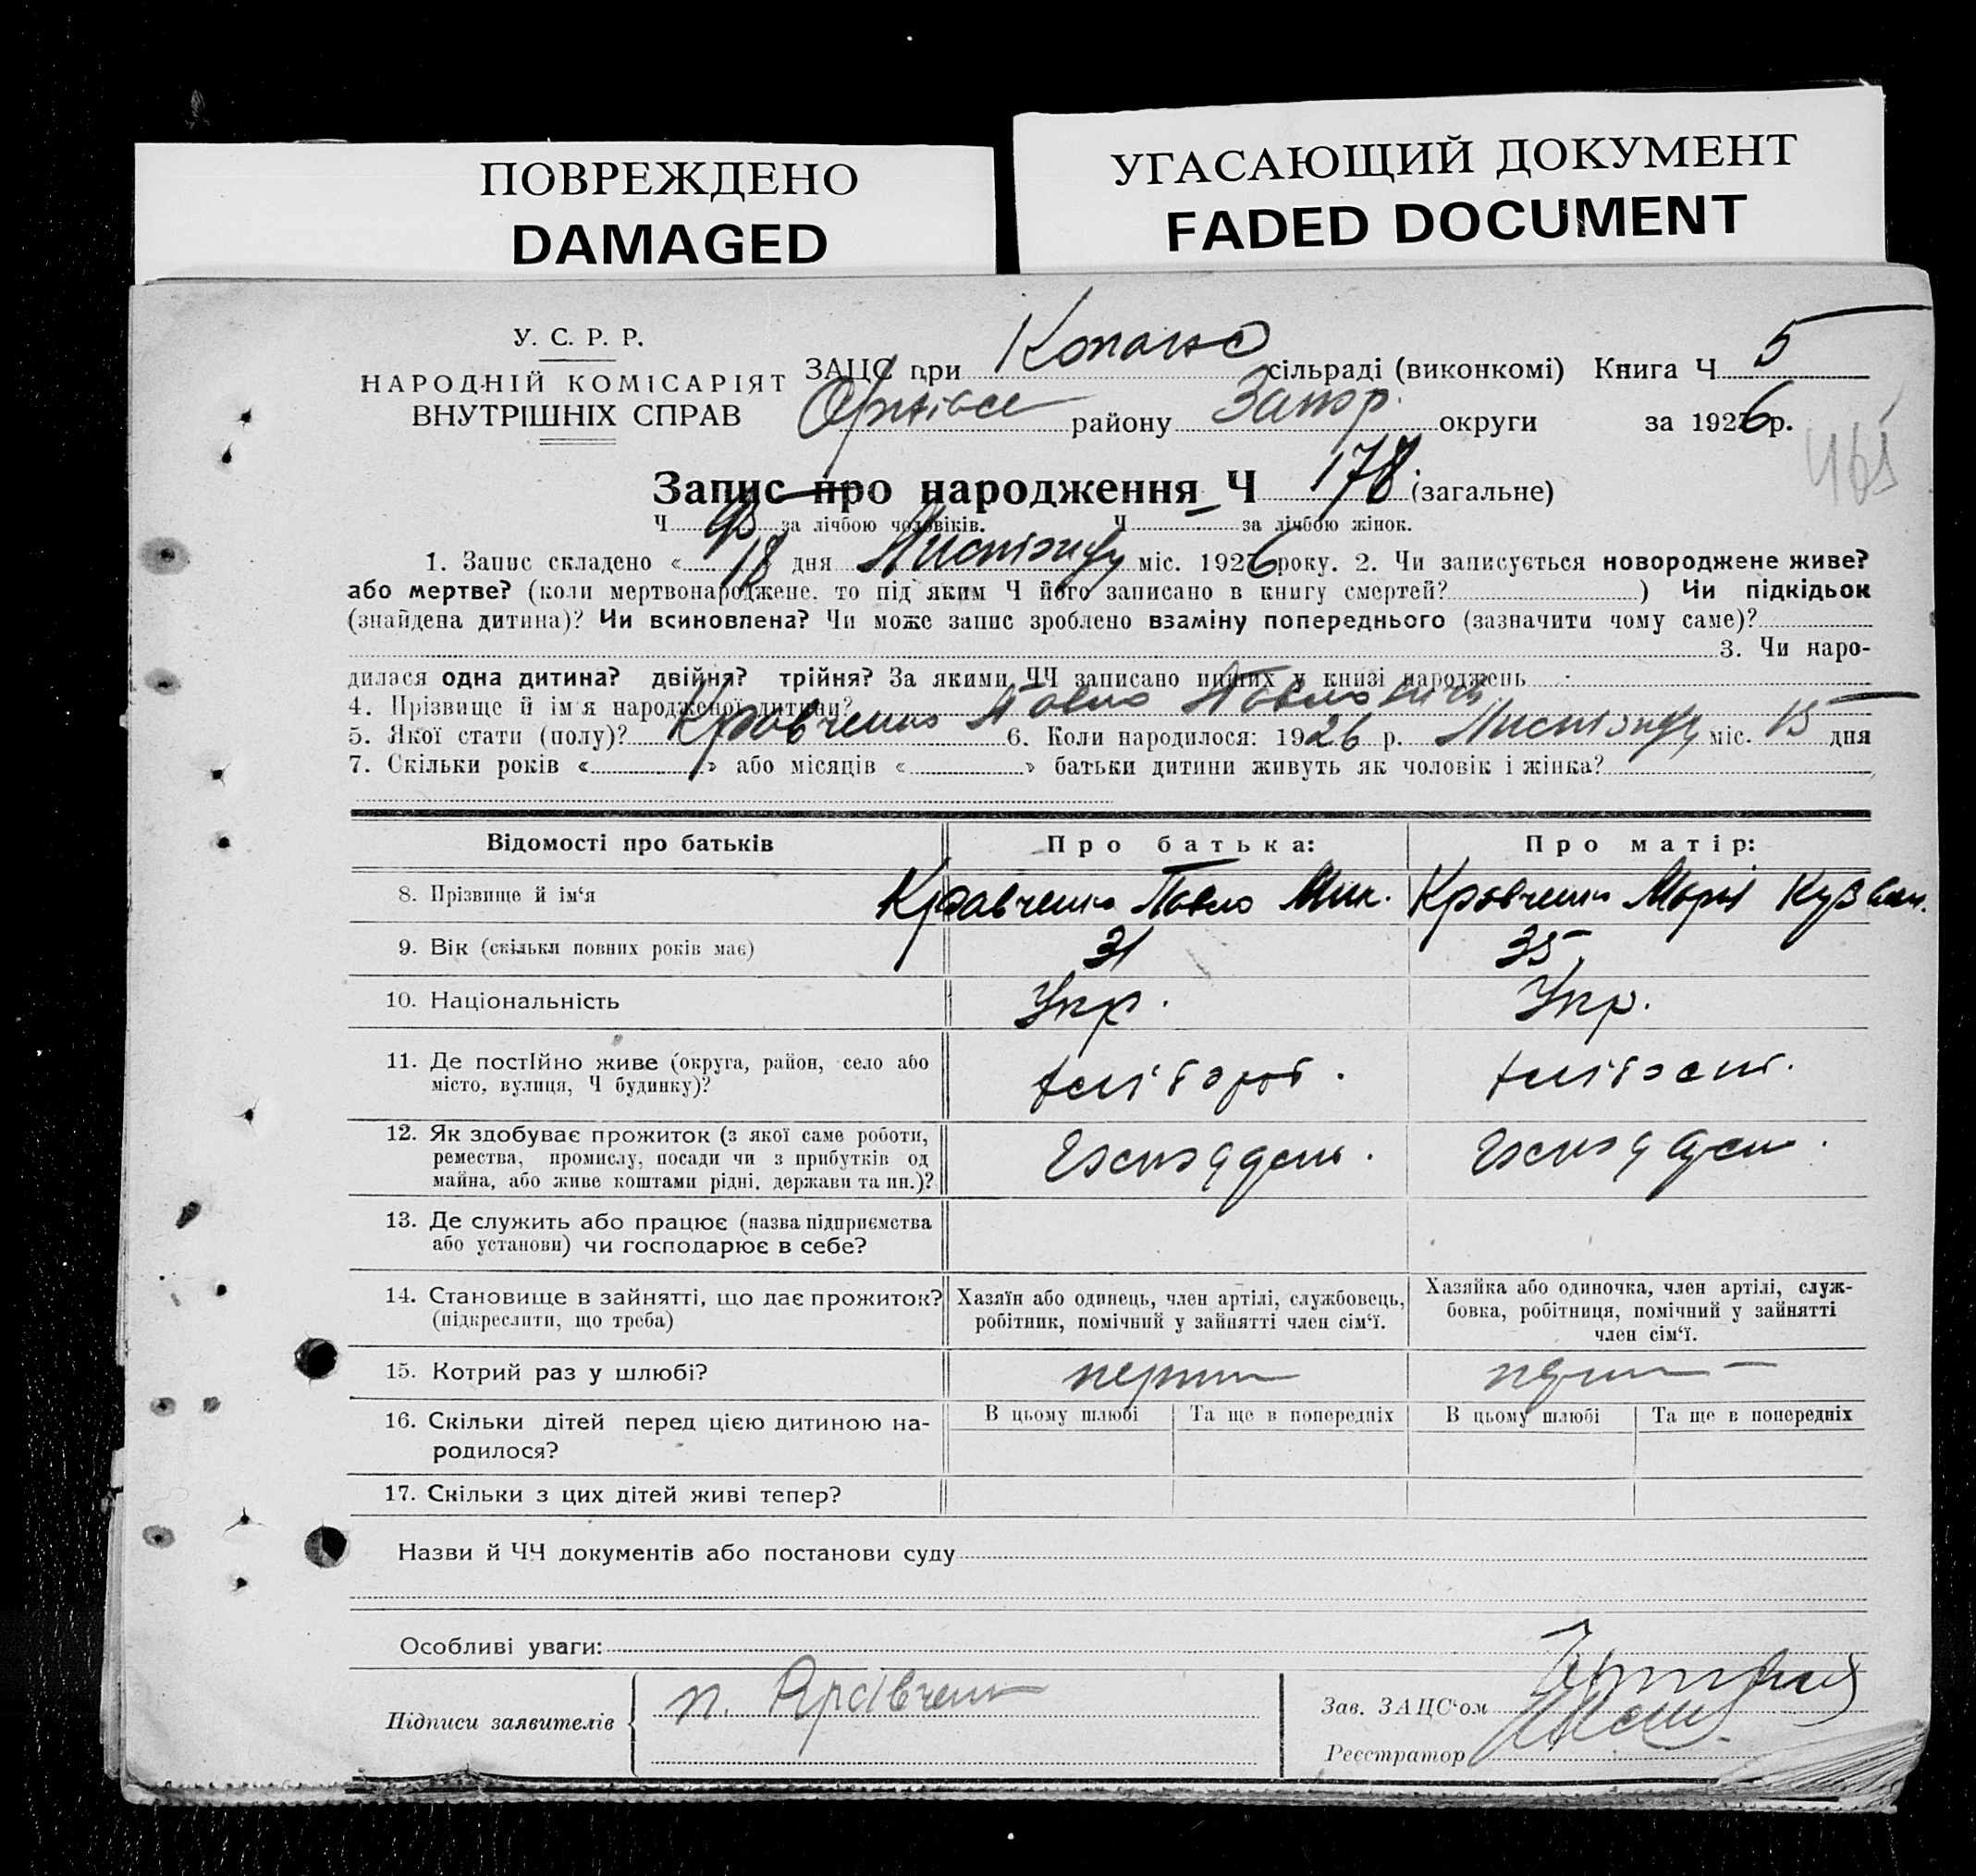 ПОВРЕЖДЕНО
DAMAGED
УГАСАЮЩИЙ ДОКУМЕНТ
FADED DOCUMENT
У. С. Р. Р.
НАРОДНІЙ КОМІСАРІЯТ
ВНУТРІШНІХ СПРАВ
ЗАЦС при Копанс сільраді (виконкомі) Книга Ч 5
району Запор. округи за 1926 р.
465
Запис про народження Ч 178 (загальне)
Ч 93 за лічбою чоловіків. Ч — за лічбою жінок.
1. Запис складено « 18 » дня Листопаду міс. 1926 року. 2. Чи записується новороджене живе?
або мертве? (коли мертвонароджене, то під яким Ч його записано в книгу смертей? ) Чи підкідьок
(знайдена дитина)? Чи всиновлена? Чи може запис зроблено взаміну попереднього (зазначити чому саме)?
3. Чи наро-
дилася одна дитина? двійня? трійня? За якими ЧЧ записано инших у книзі народжень
4. Прізвище й ім'я народженої дитини? Кравченко Павло Павлович
5. Якої стати (полу)? 6. Коли народилося: 1926 р. Листопаду міс. 15 дня
7. Скільки років « » або місяців « » батьки дитини живуть як чоловік і жінка?
Відомості про батьків Про батька: Про матір:
8. Прізвище й ім'я Кравченко Павло Мик. Кравченко Марія Кузьм.
9. Вік (скільки повних років має) 31 35
10. Національність Укр. Укр.
11. Де постійно живе (округа, район, село або
місто, вулиця, Ч будинку)?
12. Як здобуває прожиток (з якої саме роботи,
ремества, промислу, посади чи з прибутків од
майна, або живе коштами рідні, держави та ин.)?
13. Де служить або працює (назва підприємства
або установи) чи господарює в себе?
14. Становище в зайнятті, що дає прожиток? Хазяїн або одинець, член артілі, службовець, Хазяйка або одиночка, член артілі, служ-
(підкреслити, що треба) робітник, помічний у зайнятті член сім'ї. бовка, робітниця, помічний у зайнятті
член сім'ї.
15. Котрий раз у шлюбі?
16. Скільки дітей перед цією дитиною на- В цьому шлюбі Та ще в попередніх В цьому шлюбі Та ще в попередніх
родилося?
17. Скільки з цих дітей живі тепер?
Назви й ЧЧ документів або постанови суду
Особливі уваги:
Підписи заявителів п. Кравченко
Зав. ЗАЦС'ом
Реєстратор